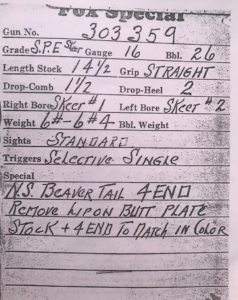 Fox Special
Gun No. 303359
Grade S.P.E Skeer Gauge 16 Bbl. 26
Length Stock 14 1/2 Grip STRAIGHT
Drop-Comb 1 1/2 Drop-Heel 2
Right Bore SKEET #1 Left Bore SKEET #2
Weight 6#-6#4 Bbl. Weight
Sights STANDARD
Triggers SELECTIVE SINGLE
Special
N.S. BEAVER TAIL 4END
REMOVE LIP ON BUTT PLATE
STOCK + 4END TO MATCH IN COLOR